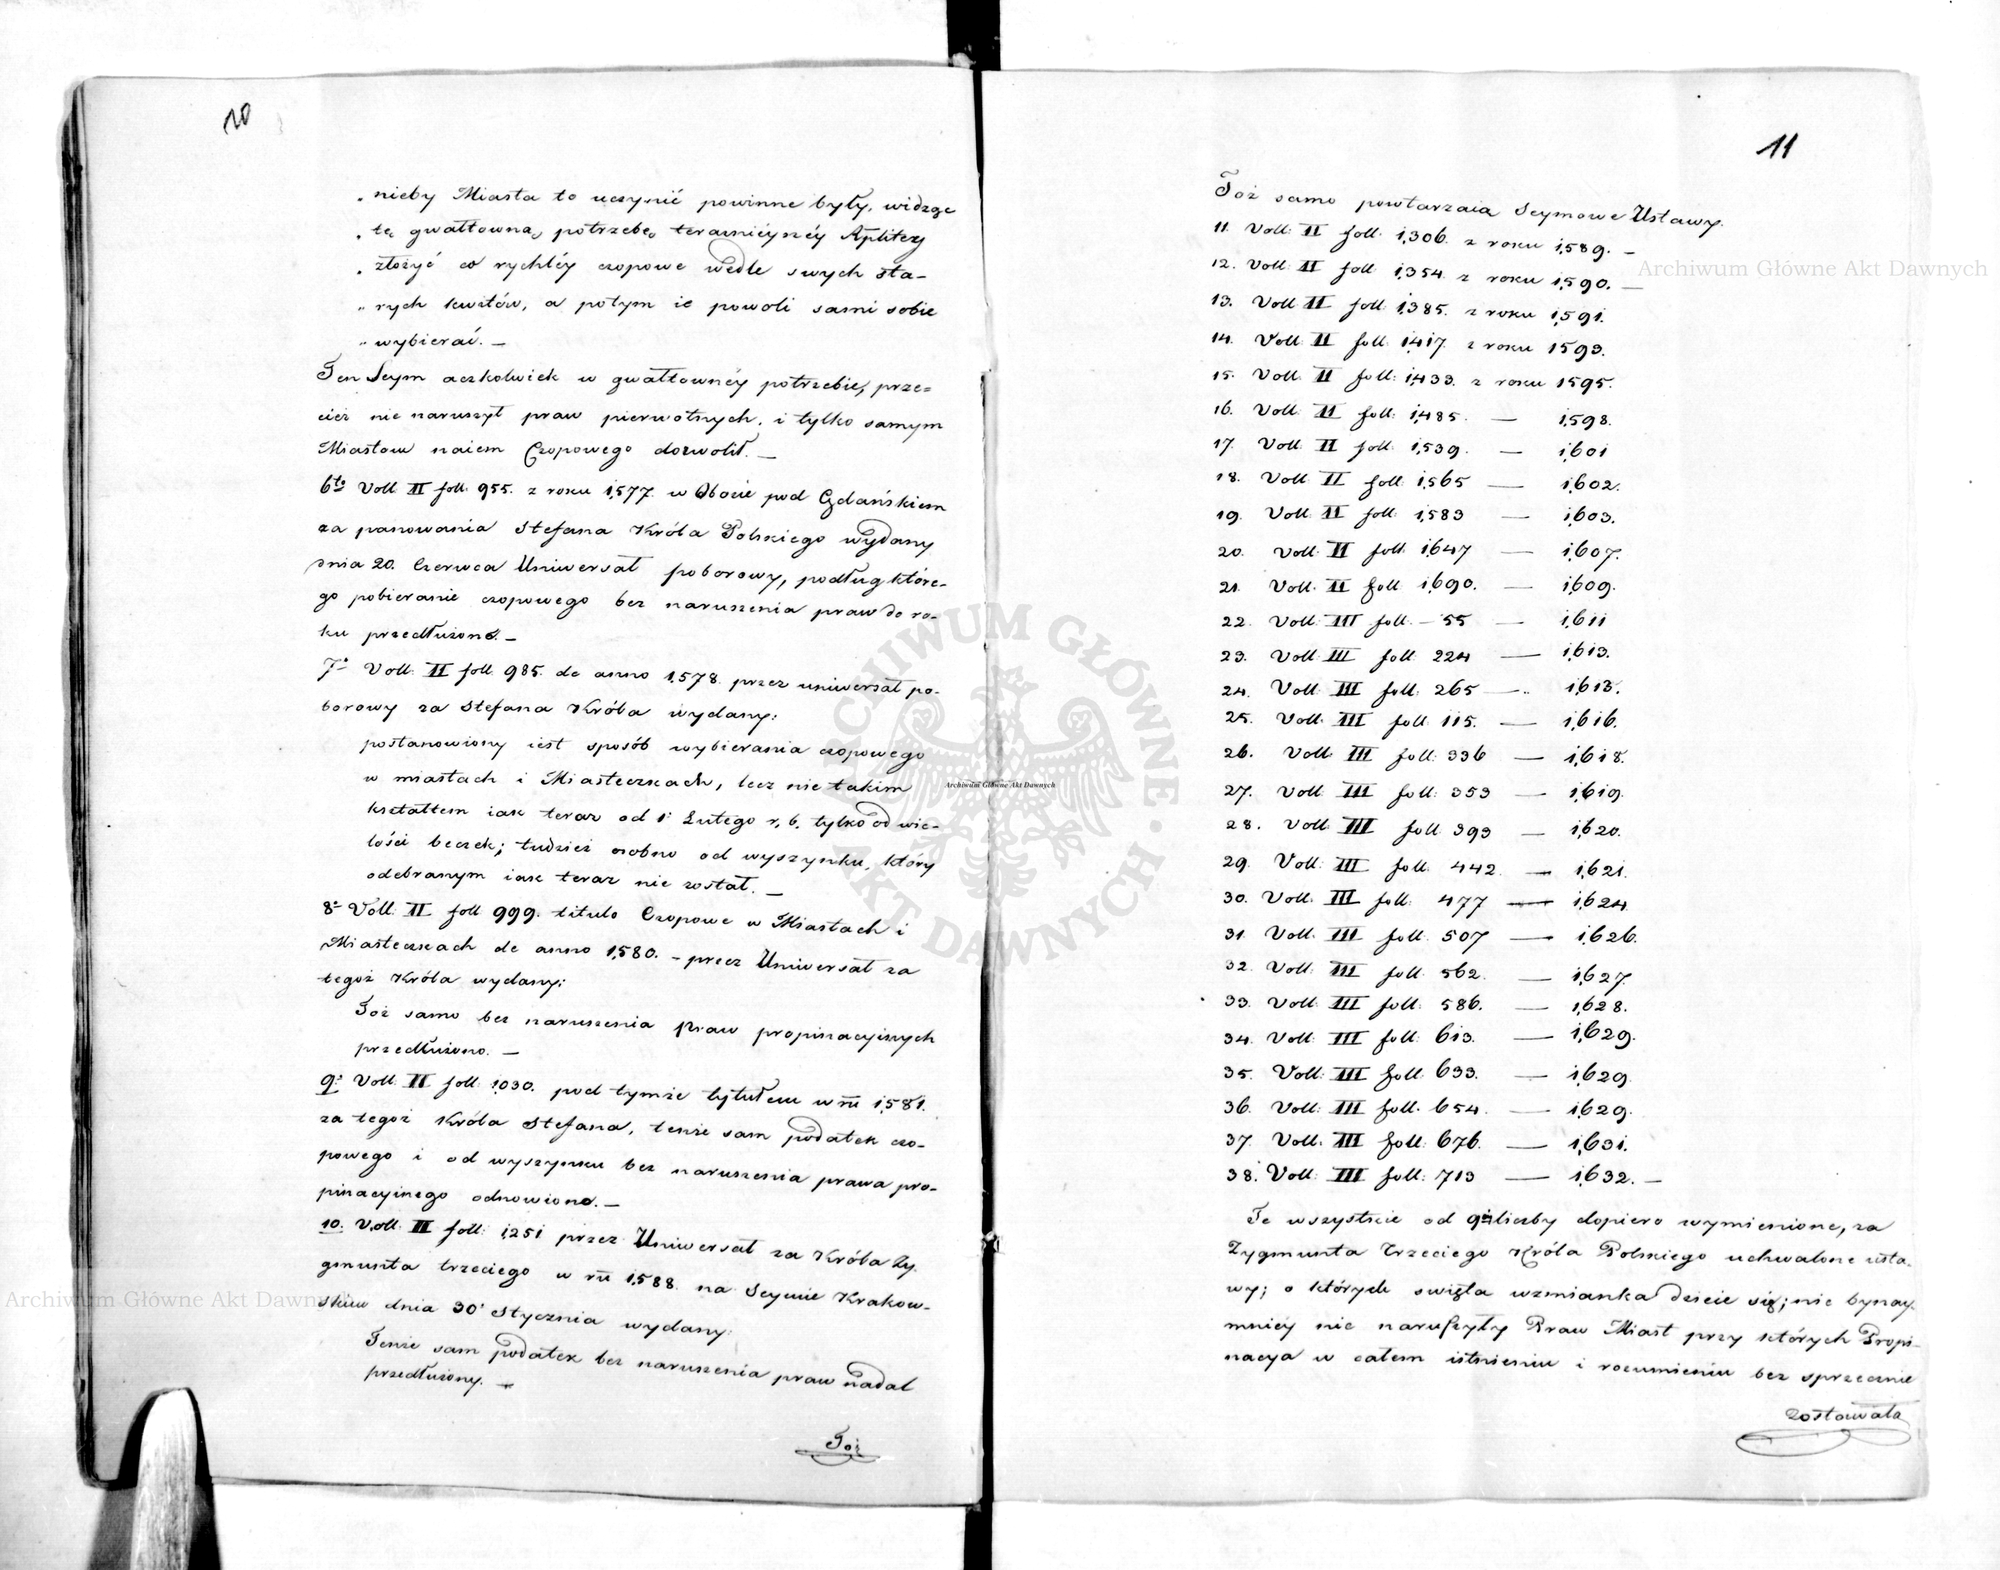 10
„ nieby Miasta to uczynić powinne były, widząc
„ tę gwałtowną, potrzebę,
„ złożyć co rychléy czopowe wedle swych sta-
„ rych kwitów, a potym ie powoli sami sobie
„ wybierać. —
Ten Seym aczkolwiek w gwałtownéy potrzebie, prze=
cież nie naruszył praw pierwotnych, i tylko samym
Miastom naiem Czopowego dozwolił. —
6to Voll. II foll. 955. z roku 1,577. w Obozie pod Gdańskiem
za panowania Stefana Króla Polskiego wydany
dnia 20. Czerwca Uniwersał poborowy, podług które-
go pobieranie czopowego bez naruszenia praw do ro-
ku przedłużono. —
7o Voll. II foll. 985. de anno 1,578. przez uniwersał po-
borowy za Stefana Króla wydany:
postanowiony iest sposób wybierania czopowego
w miastach i Miasteczkach, lecz nie takim
kształtem iak teraz od 1o Lutego r. b. tylko od wie-
lości beczek; tudzież osobno od wyszynku, który
odebranym iak teraz nie został. —
8o Voll. II foll 999. titulo Czopowe w Miastach i
Miasteczkach de anno 1,580. — przez Uniwersał za
tegoż Króla wydany:
Toż samo bez naruszenia praw propinacyinych
przedłużono. —
9o Voll. II foll. 1,030. pod tymże tytułem w ru 1,581.
za tegoż Króla Stefana, tenże sam podatek czo-
powego i od wyszynku bez naruszenia prawa pro-
pinacyinego odnowiono. —
10. Voll. II foll: 1,251 przez Uniwersał za Króla Zy-
gmunta trzeciego w ru 1,588. na Seymie Krakow-
skim dnia 30o Stycznia wydany:
Tenże sam podatek bez naruszenia praw nadal
przedłużony. —
Toż
11
Toż samo powtarzaią Seymowe Ustawy.
11. Voll: II foll. 1,306. z roku 1,589. —
12. Voll: II foll 1,354. z roku 1,590. —
13. Voll II foll. 1,385. z roku 1,591.
14. Voll. II foll. 1,417. z roku 1593.
15. Voll. II foll: 1,433. z roku 1595.
16. Voll. II foll: 1,485. — 1,598.
17. Voll II foll. 1,539. — 1,601
18. Voll II foll: 1,565 — 1,602.
19. Voll. II foll. 1,583 — 1,603.
20. Voll. II foll 1,647 — 1,607.
21. Voll. II foll 1,690. — 1,609.
22. Voll: III foll. — 55 — 1,611
23. Voll: III foll 224 — 1,613.
24. Voll. III foll: 265 — 1,613.
25. Voll. III foll 115. — 1,616.
26. Voll III foll: 336 — 1,618.
27. Voll III foll: 353 — 1,619.
28. Voll. III foll 393 — 1,620.
29. Voll: III foll. 442. — 1,621.
30. Voll. III foll: 477 — 1,624
31. Voll. III foll. 507 — 1,626.
32. Voll: III foll. 562. — 1,627.
33. Voll. III foll. 586. — 1,628.
34. Voll: III foll. 613. — 1,629.
35. Voll: III foll. 633. — 1,629.
36. Voll: III foll. 654. — 1,629.
37. Voll. III foll: 676. — 1,631.
38. Voll: III foll: 713 — 1,632. —
Te wszystkie od liczby dopiero wymienione, za
Zygmunta trzeciego Króla Polskiego uchwalone usta-
wy; o których świgła wzmianka dzieie się; nic bynay-
mniéy nie naruszyły Praw Miast przy których Propi-
nacya w całem istnieniu i rozumieniu bez sprzecznie
zostawała
Archiwum Główne Akt Dawnych
Archiwum Główne Akt Dawnych
Archiwum Główne Akt Dawnych
ARCHIWUM GŁÓWNE · AKT DAWNYCH ·